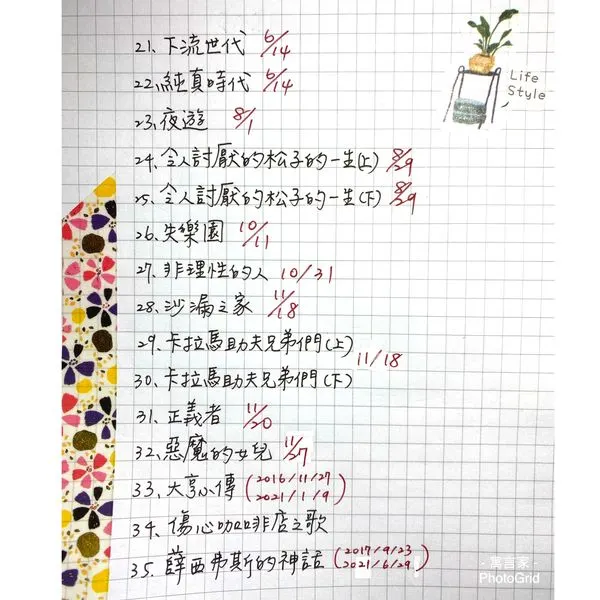 21、下流世代 6/14
22、純真時代 6/14
23、夜遊 8/1
24、令人討厭的松子的一生(上) 8/29
25、令人討厭的松子的一生(下) 8/29
26、失樂園 10/11
27、非理性的人 10/31
28、沙漏之家 11/18
29、卡拉馬助夫兄弟們(上)
11/18
30、卡拉馬助夫兄弟們(下)
31、正義者 11/20
32、惡魔的女兒 11/27
33、大亨小傳 (2016/11/27
2021/1/9)
34、傷心咖啡店之歌
35、薛西弗斯的神話 (2017/9/23
2021/6/29)
Life
Style
- 寓言家 -
PhotoGrid